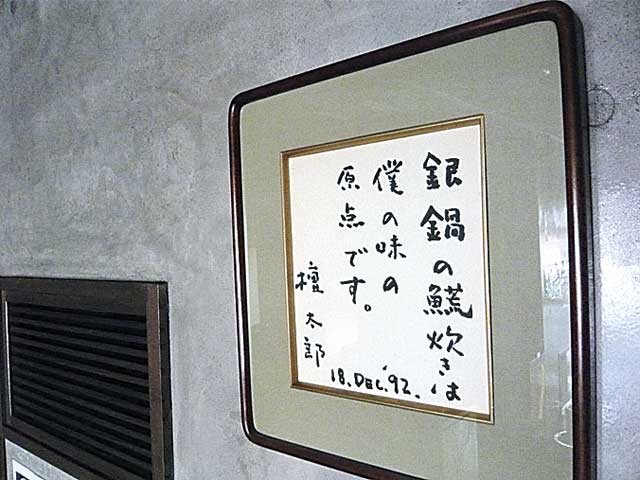 銀鍋の鱿炊きは
僕の味の
原点です。
檀太郎
18. DEC. '92.